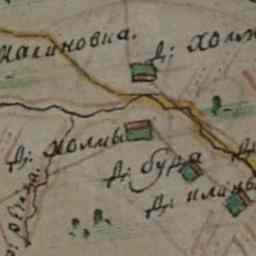 Малиновка.
Д: Холм
Д: Холмы
Д: бура
Д:
Д: илины